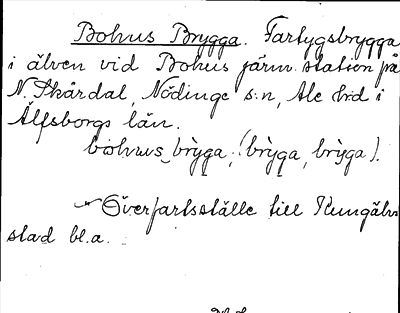 Bohus Brygga. Fartygsbrygga
i älven vid Bohus järnv. station på
N. Skårdal, Nödinge s:n, Ale h:d i
Älfsborgs län.
bohus brỳga, (brỳga, brỳga).
Överfartsställe till Kungälvs
stad bl.a.